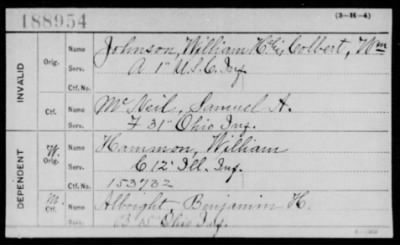 188954
(3-H-4)
INVALID
Orig.
Name Johnson, William H. Colbert, Wm
Serv. A 1" U.S.C. Inf.
Ctf. No.
Ctf.
Name McNeil, Samuel A.
Serv. F 31" Ohio Inf.
DEPENDENT
W. Orig.
Name Hammon, William
Serv. C 12" Ill. Inf.
Ctf. No. 153782
M. Ctf.
Name Albright Benjamin H.
Serv. B Ohio Inf.